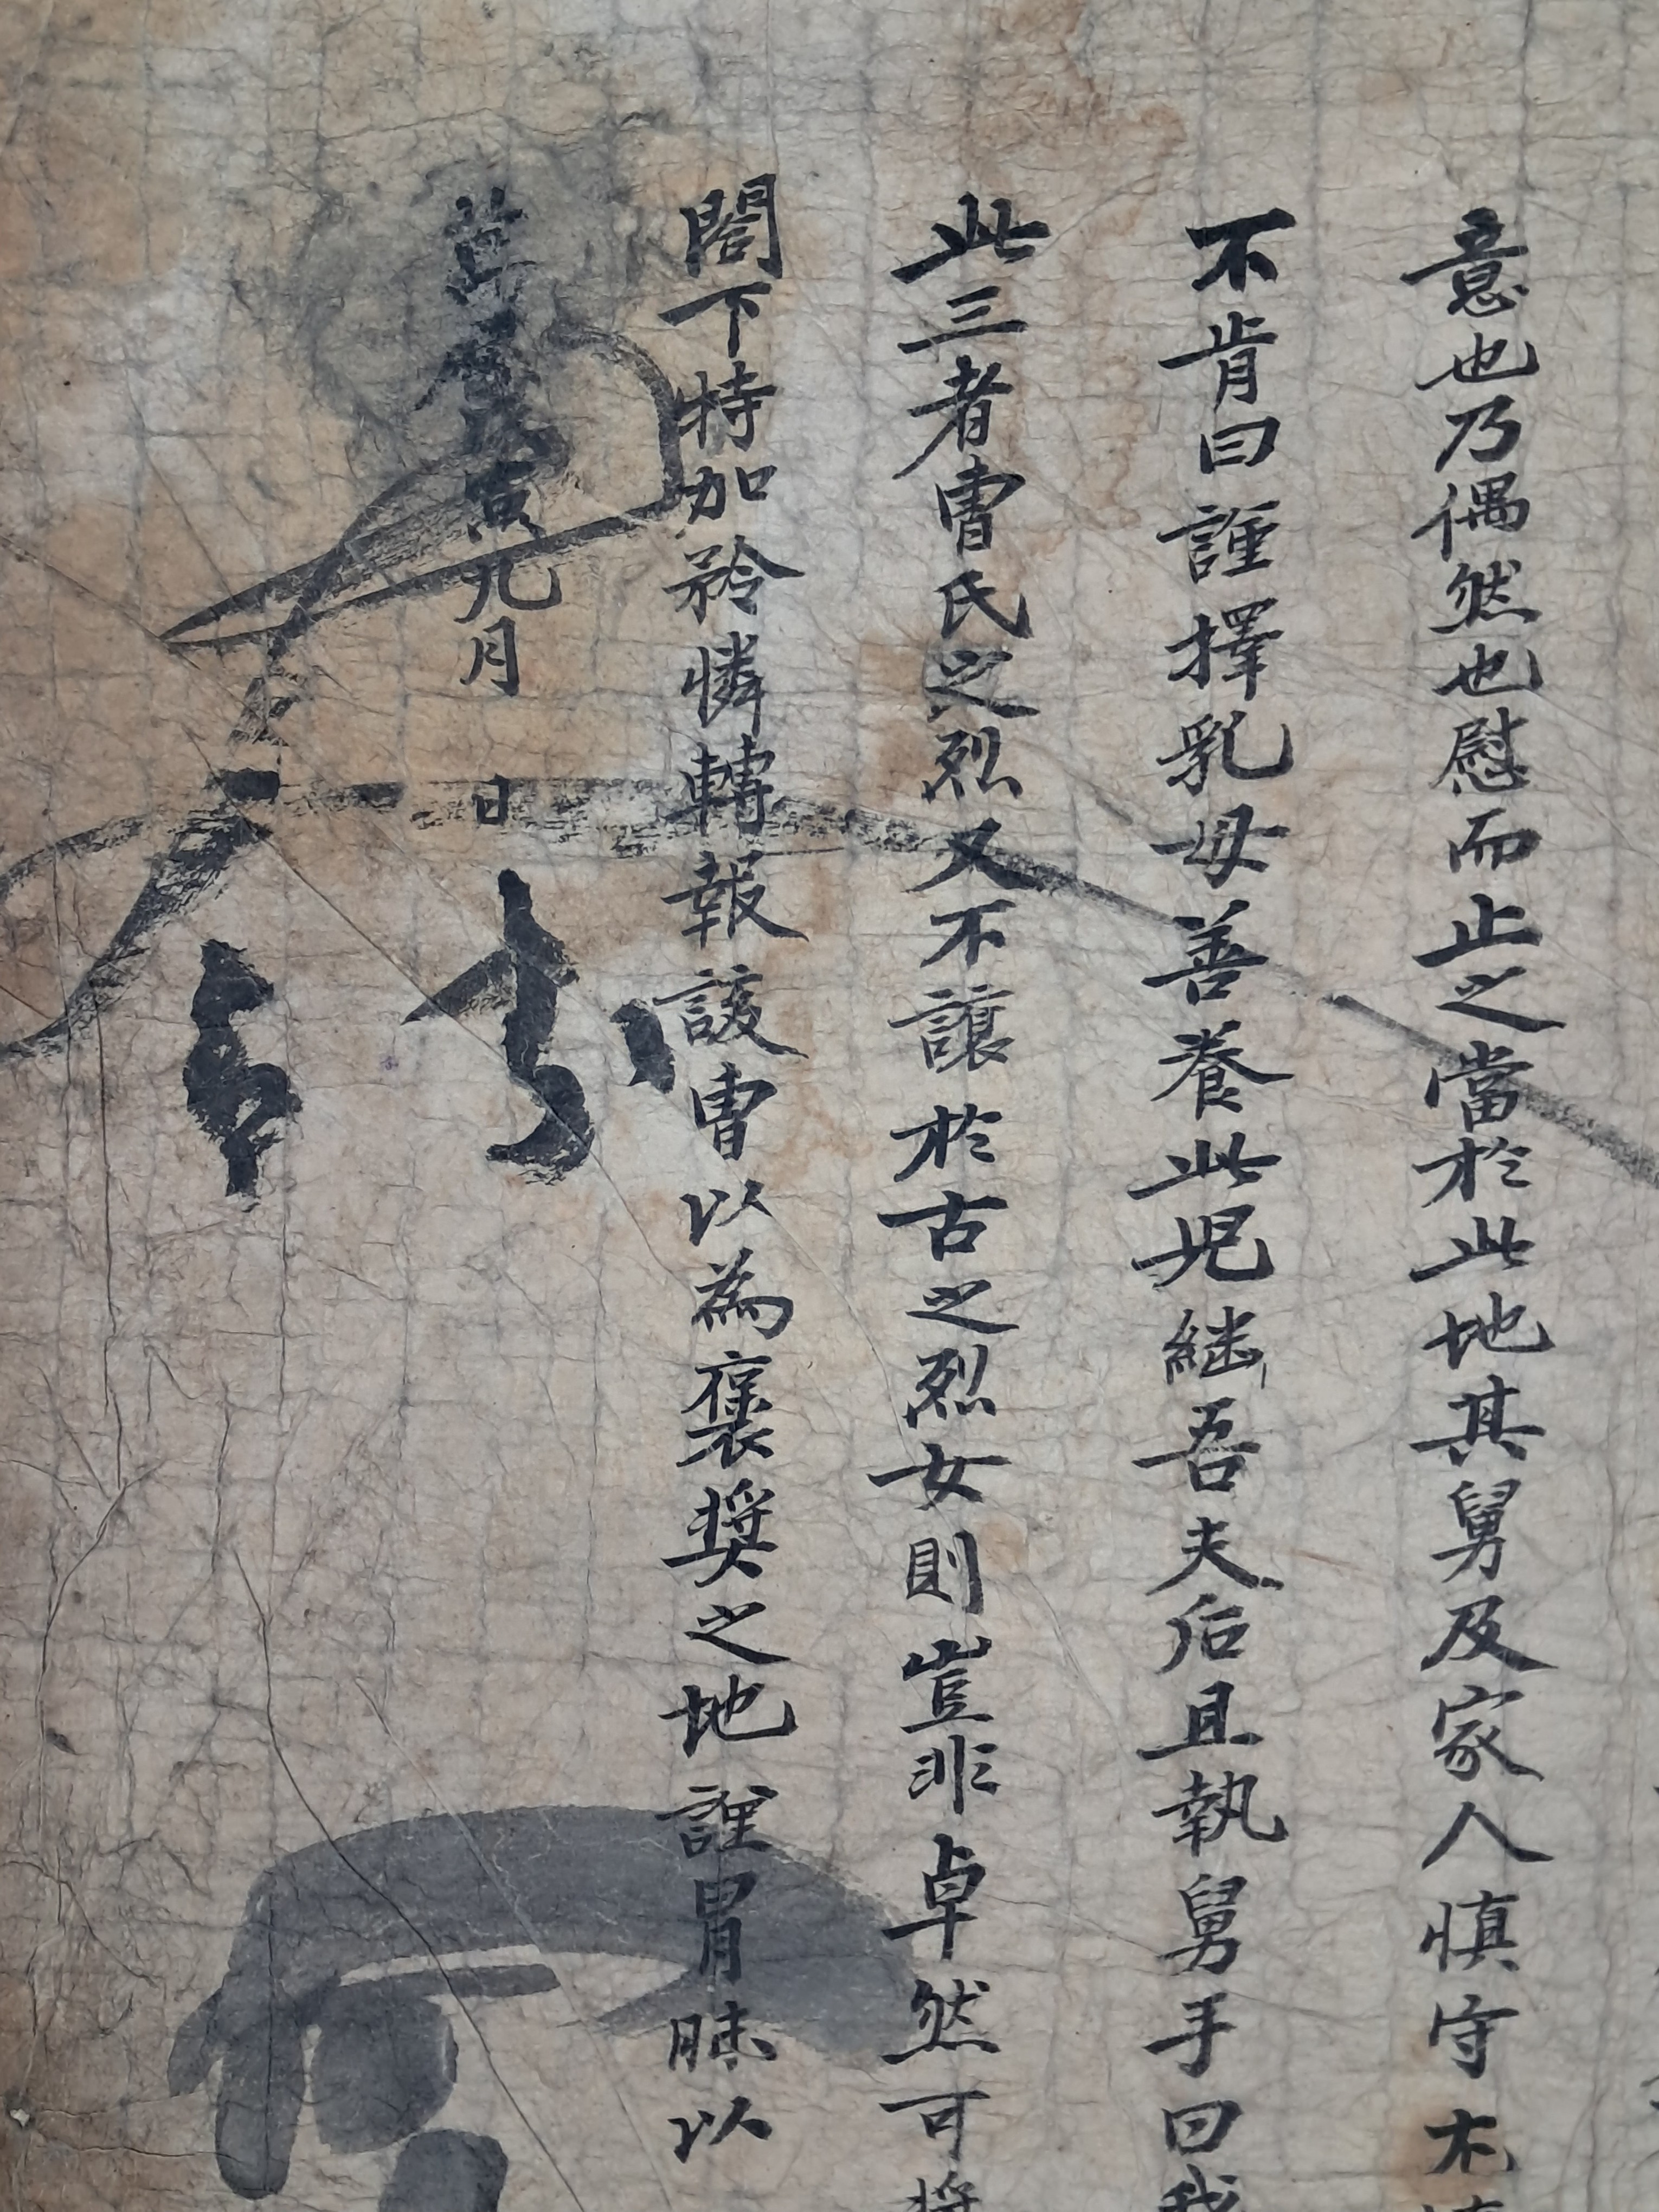 意也乃偶然也慰而止之當於此地其舅及家人慎守不
不肯曰謹擇乳母善養此児継吾夫后且執舅手曰我
此三者曺氏之烈又不讓於古之烈女則豈非卓然可奬
閤下特加矜憐轉報該曺以為褒奬之地謹冒昧以
寅元月 日